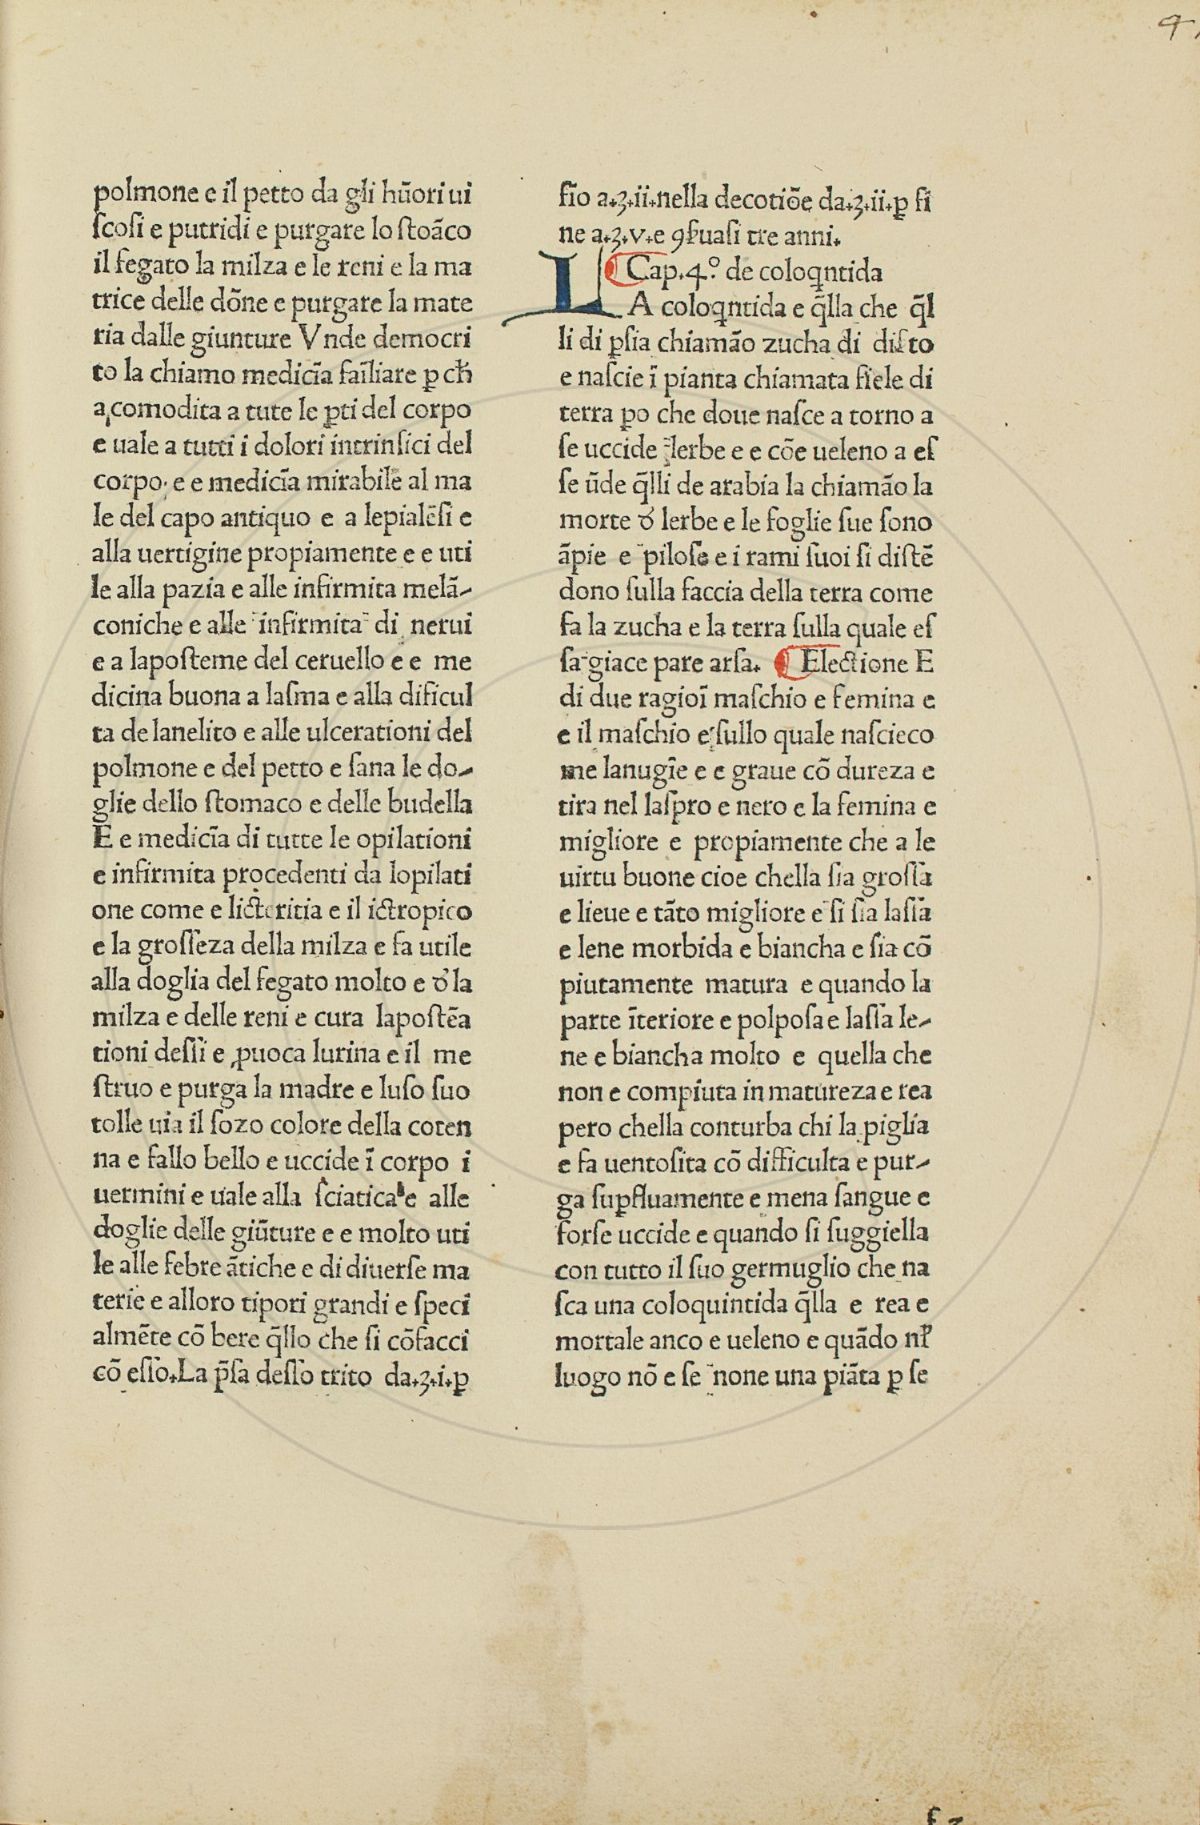 polmone e il petto da gli hūori ui
ſcoſi e putridi e purgare lo ſtoāco
il fegato la milza e le reni e la ma
trice delle dōne e purgare la mate
ria dalle giunture Vnde democri
to la chiamo medicīa faīliare ꝑ cħ
a comodita a tute le ꝑti del corpo
e uale a tutti i dolori intrinſici del
corpo. e e medicīa mirabile al ma
le del capo antiquo e a lepialēſi e
alla uertigine propiamente e e uti
le alla pazia e alle infirmita melā-
coniche e alle infirmita di nerui
e a lapoſteme del ceruello e e me
dicina buona a laſma e alla dificul
ta de lanelito e alle ulcerationi del
polmone e del petto e ſana le do-
glie dello ſtomaco e delle budella
E e medicīa di tutte le opilationi
e infirmita procedenti da lopilati
one come e licteritia e il ictropico
e la groſſeza della milza e fa utile
alla doglia del fegato molto e đ la
milza e delle reni e cura lapoſtēa
tioni deſſi e ꝓuoca lurina e il me
ſtruo e purga la madre e luſo ſuo
tolle uia il ſozo colore della coten
na e fallo bello e uccide ī corpo i
uermini e uale alla ſciatica e alle
doglie delle giūture e e molto uti
le alle febre ātiche e di diuerſe ma
terie e alloro tipori grandi e ſpeci
almēte cō bere q̄llo che ſi cōfacci
cō eſſo.La p̄ſa deſſo trito da.ʒ.i.ꝑ
fīo a.ʒ.ii.nella decotiōe da.ʒ.ii.ꝑ fi
ne a.ʒ.v.e ꝯſ̄uaſi tre anni.
Cap.4.° de coloqntida
LA coloqntida e q̄lla che q̄l
li di ꝑſia chiamāo zucha di diſto
e naſcie ī pianta chiamata fiele di
terra ꝑo che doue naſce a torno a
ſe uccide lerbe e e cōe ueleno a eſ
ſe ūde q̄lli de arabia la chiamāo la
morte đ lerbe e le foglie ſue ſono
āpie e piloſe e i rami ſuoi ſi diſtē
dono ſulla faccia della terra come
fa la zucha e la terra ſulla quale eſ
ſa giace pare arſa. Electione E
di due ragioī maſchio e femina e
e il maſchio e ſullo quale naſcieco
me lanugīe e e graue cō dureza e
tira nel laſpro e nero e la femina e
migliore e propiamente che a le
uirtu buone cioe chella ſia groſſa
e lieue e tāto migliore e ſi ſia laſſa
e lene morbida e biancha e ſia cō
piutamente matura e quando la
parte īteriore e polpoſa e laſſa le-
ne e biancha molto e quella che
non e compiuta in matureza e rea
pero chella conturba chi la piglia
e fa uentoſita cō difficulta e pur-
ga ſuꝑfluamente e mena ſangue e
forſe uccide e quando ſi ſuggiella
con tutto il ſuo germuglio che na
ſca una coloquintida q̄lla e rea e
mortale anco e ueleno e quādo nł
luogo nō e ſe none una piāta ꝑ ſe